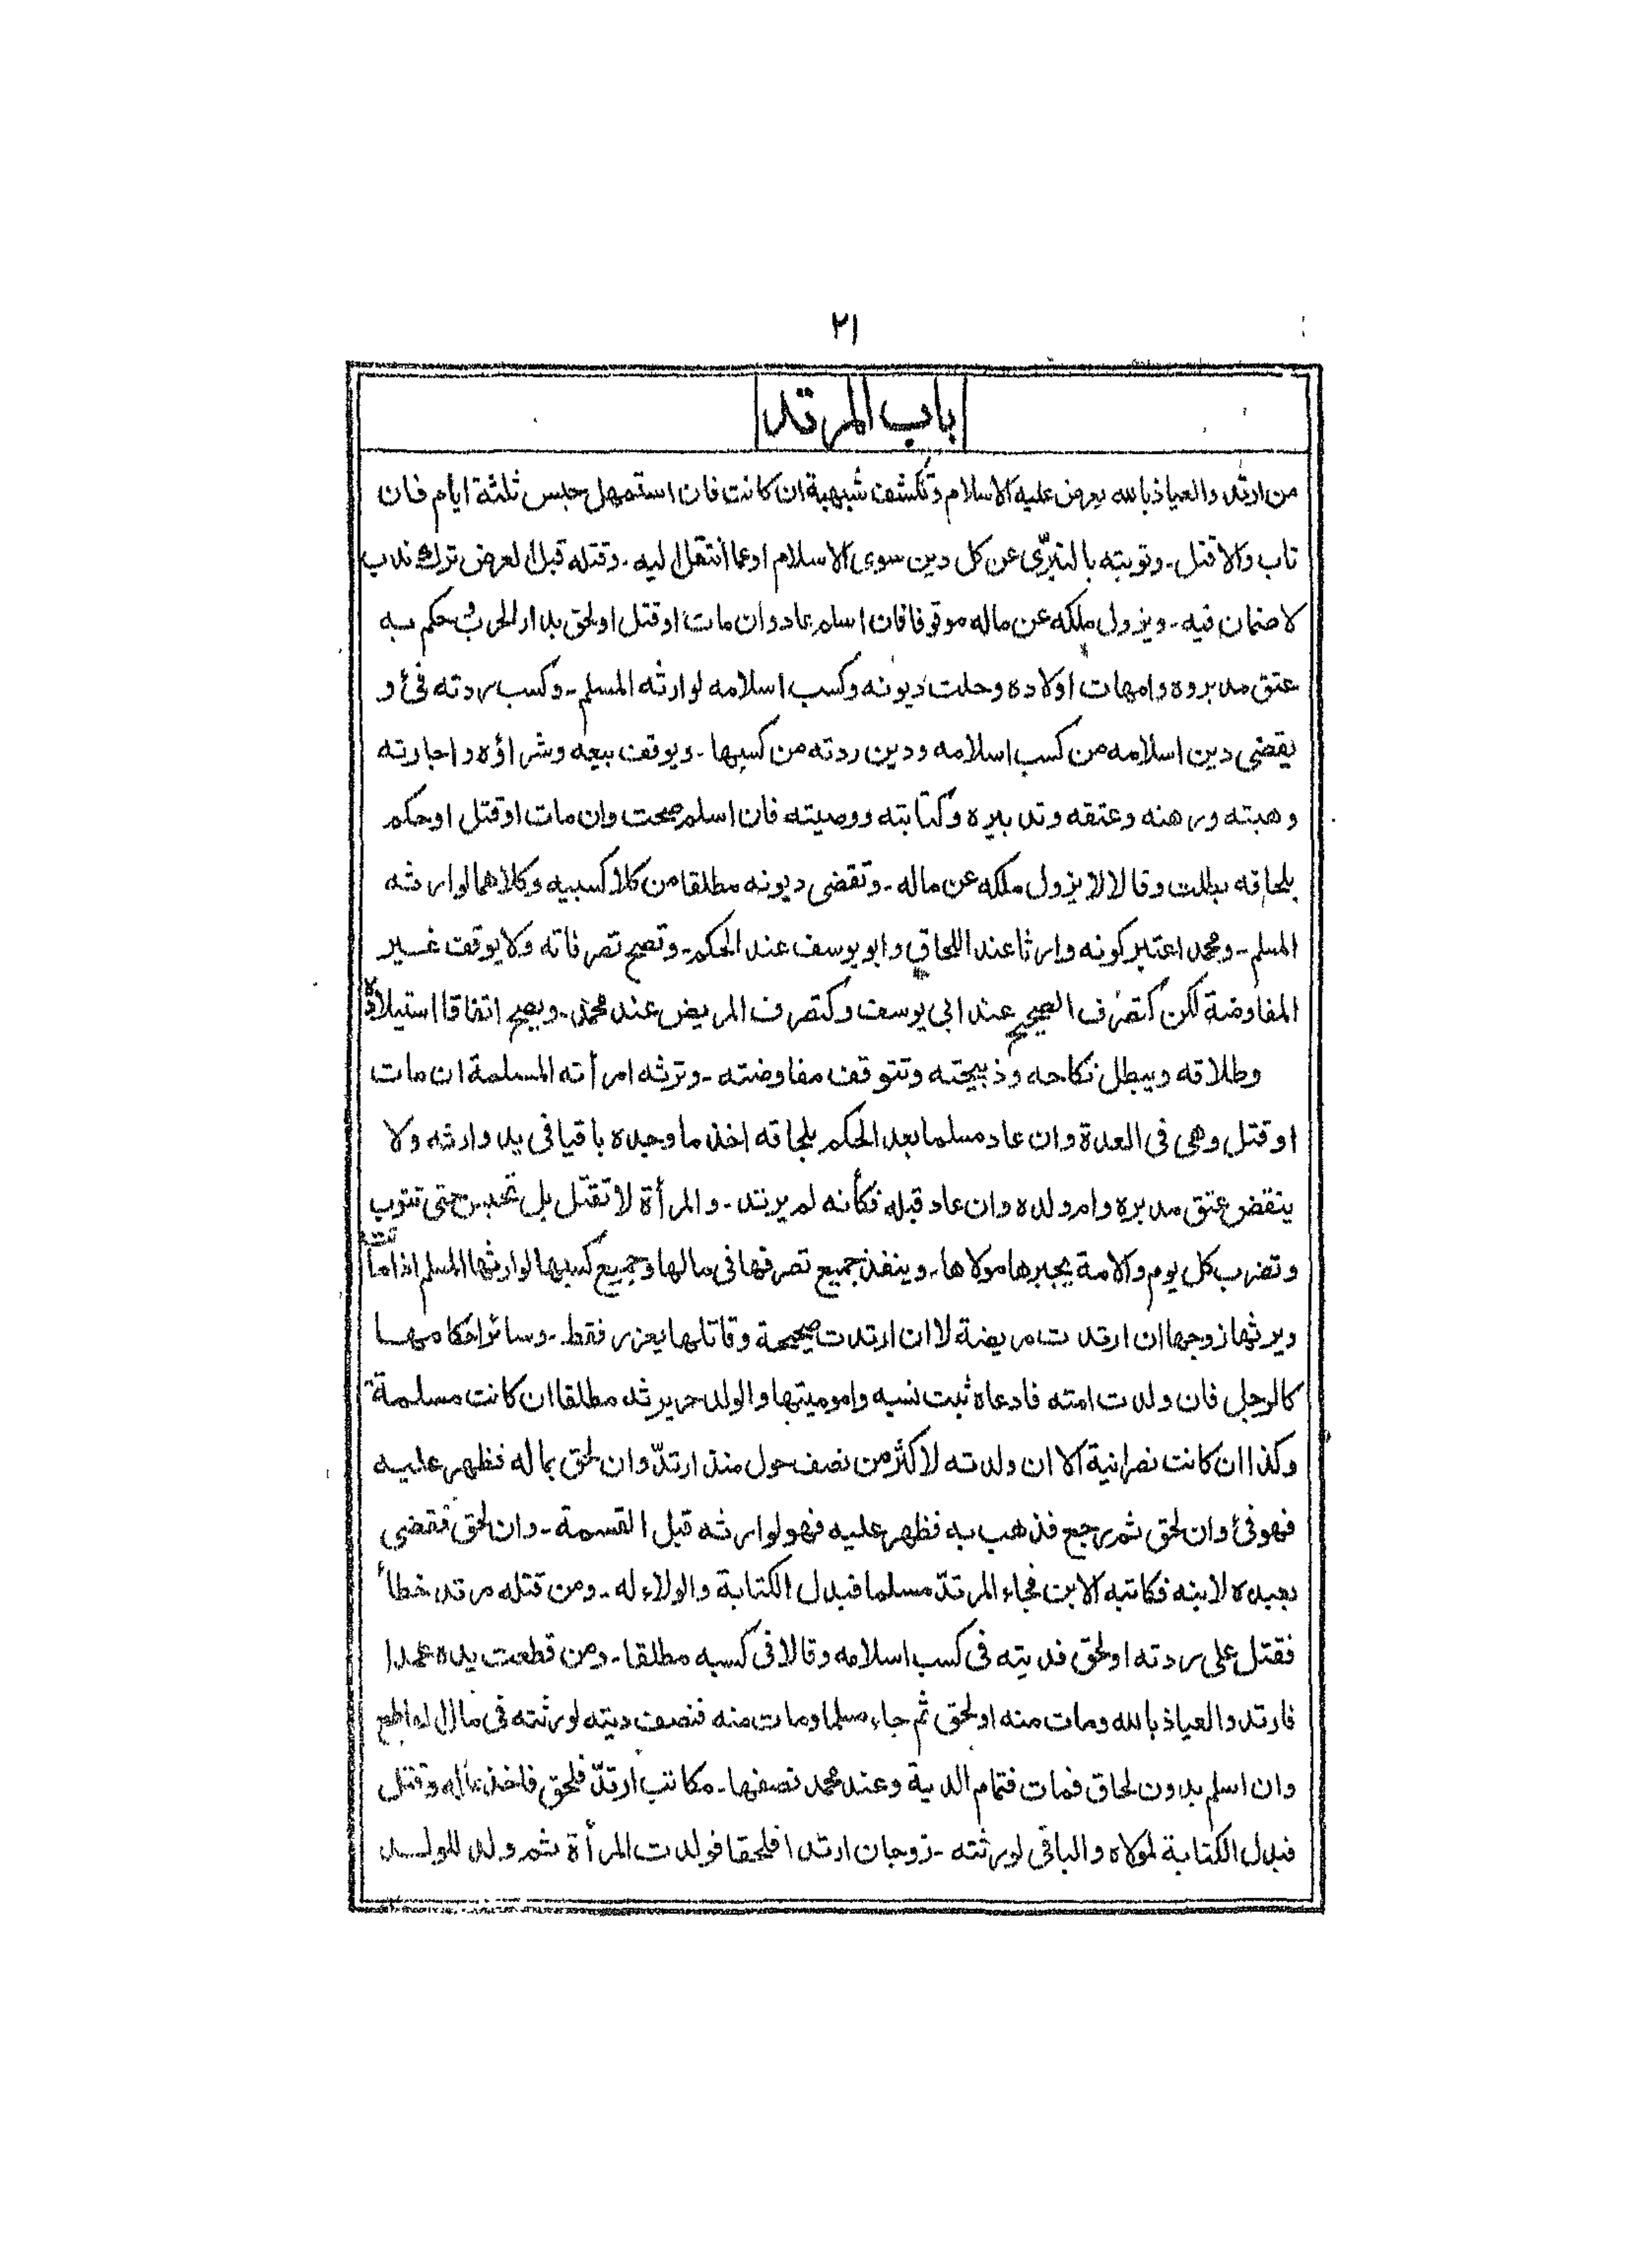 ٢١
باب المرتد
من ارتد والعياذ بالله يعرض عليه الاسلام وتكشف شبهية ان كانت فان استمهل حبس ثلثة ايام فان
تاب والا قتل ۔ وتوبته بالتبرّى عن كل دين سوى الاسلام او عما انتقل اليه ۔ وقتله قبل العرض ترك ندب
لا ضمان فيه ۔ ويزول ملكه عن ماله موقوفا فان اسلم عاد وان مات او قتل او لحق بدار الحرب وحكم به
عتق مدبروه وامهات اولاده وحلت ديونه وكسب اسلامه لوارثه المسلم ۔ وكسب ردته فئ و
يقضى دين اسلامه من كسب اسلامه ودين ردته من كسبها ۔ ويوقف بيعه وشراؤه واجارته
وهبته ورهنه وعتقه وتدبيره وكتابته ووصيته فان اسلم صحت وان مات او قتل او حكم
بلحاقه بطلت وقالا لا يزول ملكه عن ماله ۔ وتقضى ديونه مطلقا من كلا كسبيه وكلاهما لوارثه
المسلم ۔ ومحمد اعتبر كونه وارثا عند اللحاق وابو يوسف عند الحكم ۔ وتصح تصرفاته ولا يوقف غير
المفاوضة لكن كتصرف الصحيح عند ابى يوسف وكتصرف المريض عند محمد ۔ ويصح اتفاقا استيلاده
وطلاقه ويبطل نكاحه وذبيحته وتتوقف مفاوضته ۔ وترثه امرأته المسلمة ان مات
او قتل وهى فى العدة وان عاد مسلما بعد الحكم بلحاقه اخذ ما وجده باقيا فى يد وارثه ولا
ينقض عتق مدبره وام ولده وان عاد قبله فكأنه لم يرتد ۔ والمرأة لا تقتل بل تحبس حتى تتوب
وتضرب كل يوم والامة يجبرها مولاها ۔ وينفذ جميع تصرفها فى مالها وجميع كسبها لوارثها المسلم اذا ماتت
ويرثها زوجها ان ارتدت مريضة لا ان ارتدت صحيحة وقاتلها يعزر فقط ۔ وسائر احكامها
كالرجل فان ولدت امته فادعاه ثبت نسبه واموميتها والولد حر يرثه مطلقا ان كانت مسلمة
وكذا ان كانت نصرانية الا ان ولدته لاكثر من نصف حول منذ ارتدّ وان لحق بماله فظهر عليه
فهو فئ وان لحق ثم رجع فذهب به فظهر عليه فهو لوارثه قبل القسمة ۔ وان لحق فقضى
بعبده لابنه فكاتبه الابن فجاء المرتدّ مسلما فبدل الكتابة والولاء له ۔ ومن قتله مرتد خطأ
فقتل على ردته او لحق فديته فى كسب اسلامه وقالا فى كسبه مطلقا ۔ ومن قطعت يده عمدا
فارتد والعياذ بالله ومات منه او لحق ثم جاء مسلما ومات منه فنصف ديته لورثته فى مال القاطع
وان اسلم بدون لحاق فمات فتمام الدية وعند محمد نصفها ۔ مكاتب ارتدّ فلحق فاخذ بماله وقتل
فبدل الكتابة لمولاه والباقى لورثته ۔ زوجان ارتدا فلحقا فولدت المرأة ثم ولد للولد